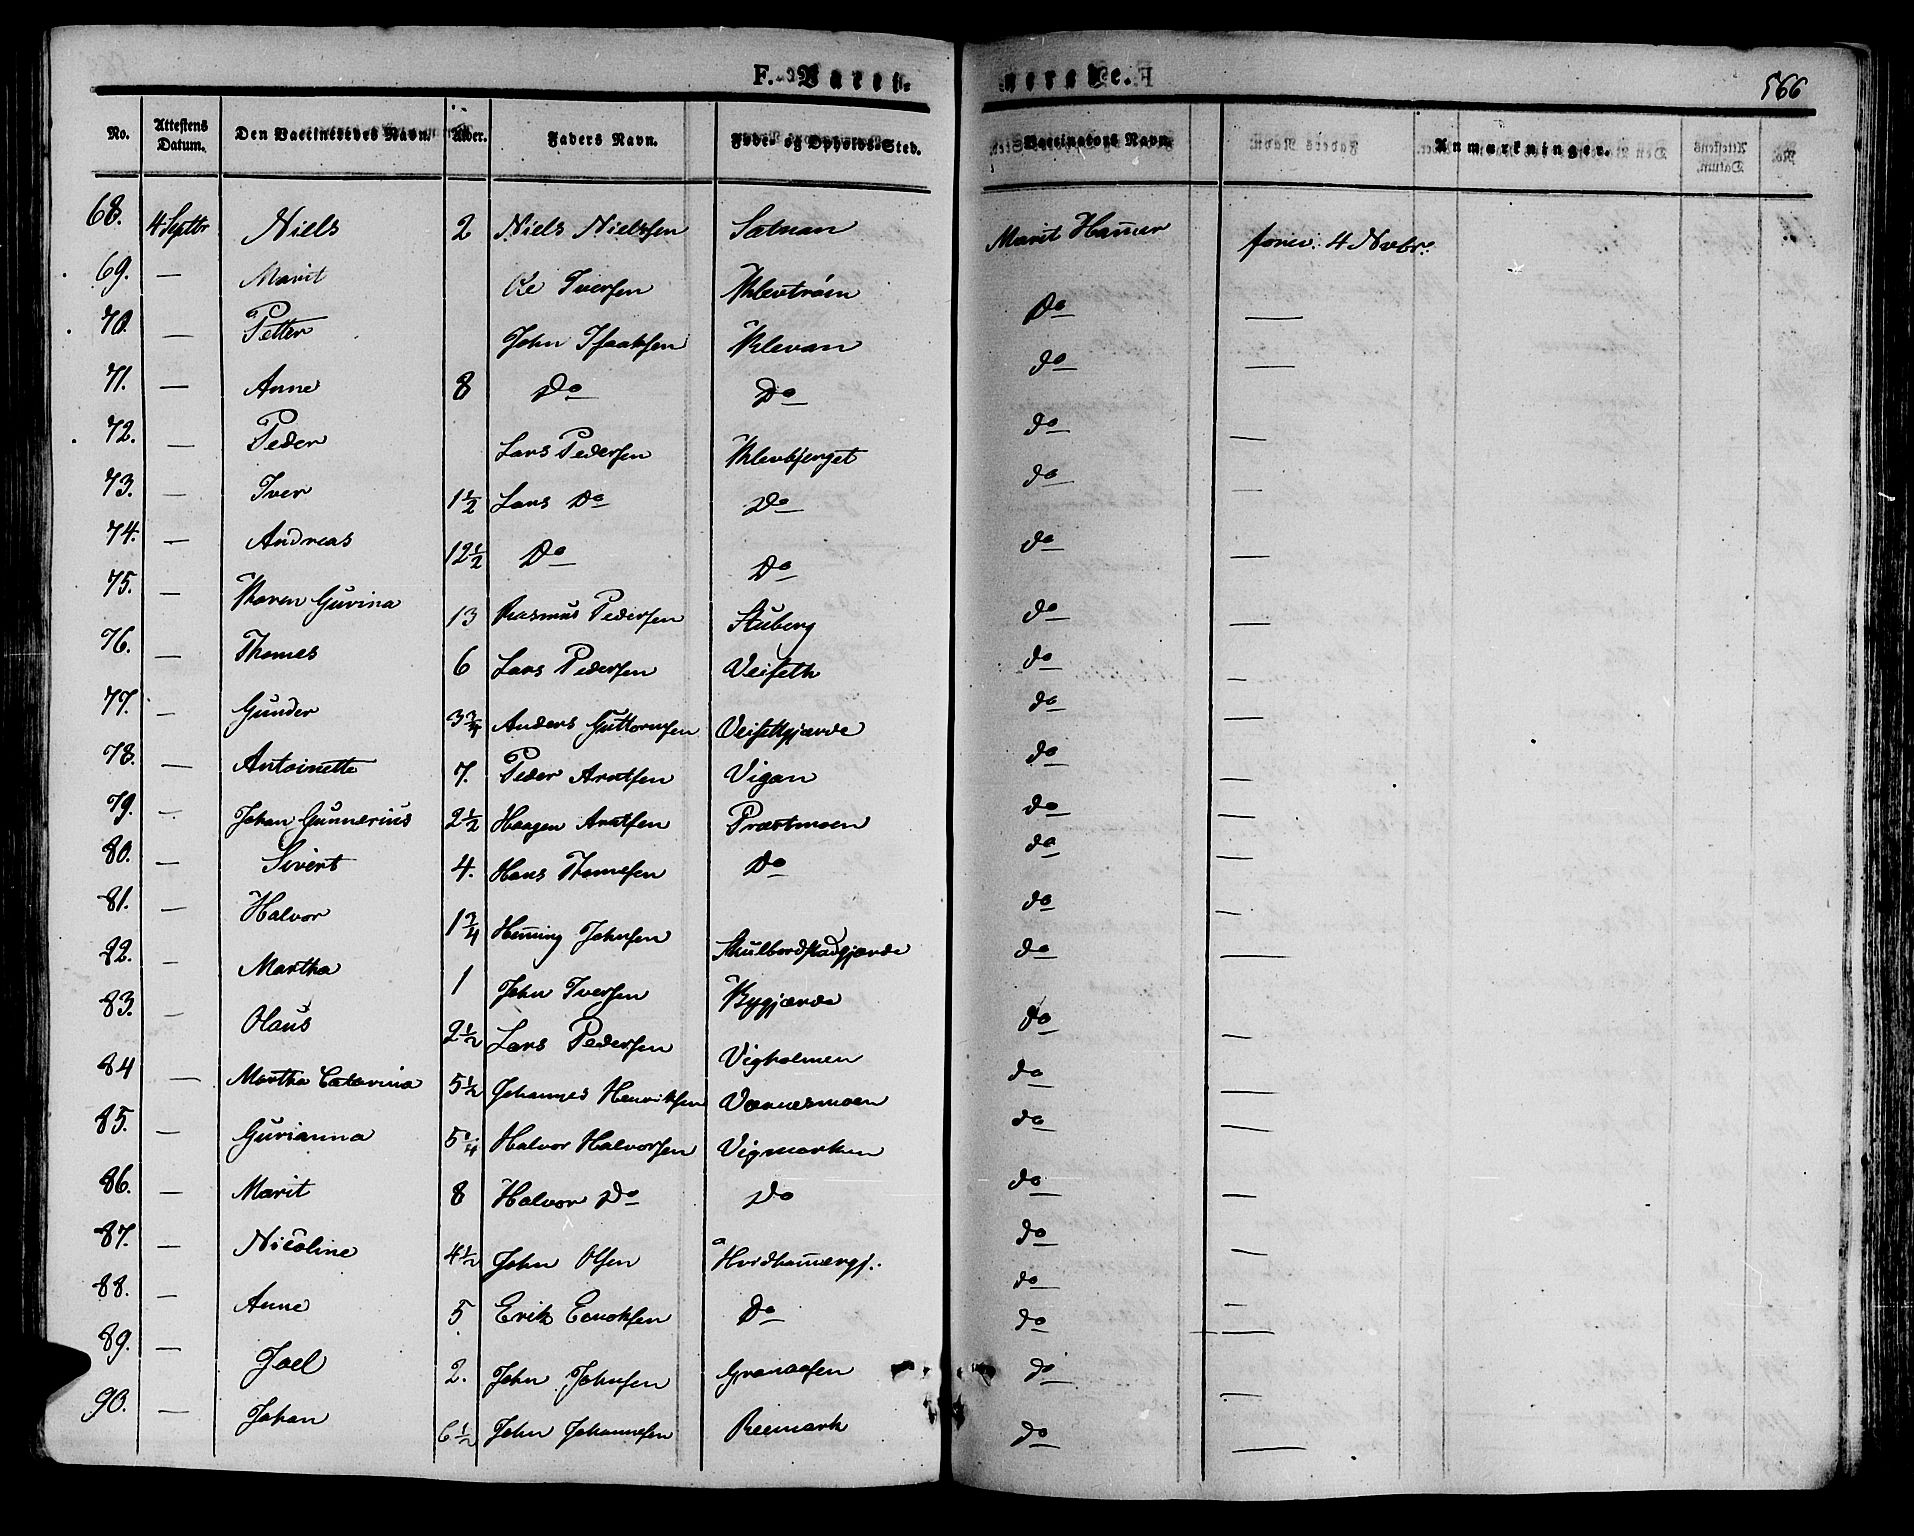 F. Vacci-
nerede.
566
No. Attestens Datum. Den Vaccineredes Navn. Alder. Faders Navn. Føde- og Opholds-Sted. Vaccinators Navn. Anmærkninger.
68. 4 Septbr Niels 2 Niels Nielssen Sætnan Marit Ham̄er forev. 4 Novbr.
69. — Marit Ole Iversen Klevtrøen Do —
70. — Petter John Isaaksen Klevan do —
71. — Anne 8 Do Do do —
72. — Peder Lars Pedersen Klevbjerget do —
73. — Iver 1½ Lars Do Do do —
74. — Andreas 12½ Do Do do —
75. — Karen Gurina 13 Rasmus Pedersen Stuberg do —
76. — Thomes 6 Lars Pedersen Veiseth do —
77. — Gunder 3¾ Anders Guttormsen Veisetgjærde do —
78. — Antoinette 7. Peder Arntsen Vigan do —
79. — Johan Gunnerius 2½ Haagen Arntsen Præstmoen do —
80. — Sivert 4. Hans Thomesen Do do —
81. — Halvor 1¾ Hem̄ing Johnsen Skulbordstadgjærde do —
82. — Martha 1 John Iversen Rygjærde do —
83. — Olaus 2½ Lars Pedersen Vigholmen do —
84 — Martha Catarina 5½ Johannes Henriksen Værnesmoen do —
85. — Gurianna Halvor Halvorsen Vigmarken do —
86. — Marit 8 Halvor Do Do do —
87. — Nicoline 4½ John Olsen Hvidham̄ergj. do —
88. — Anne 5 Erik Enoksen Do do —
89. — Joel 2. John Johnsen Granaasen do —
90. — Johan 6½ John Johannesen Reemark do —